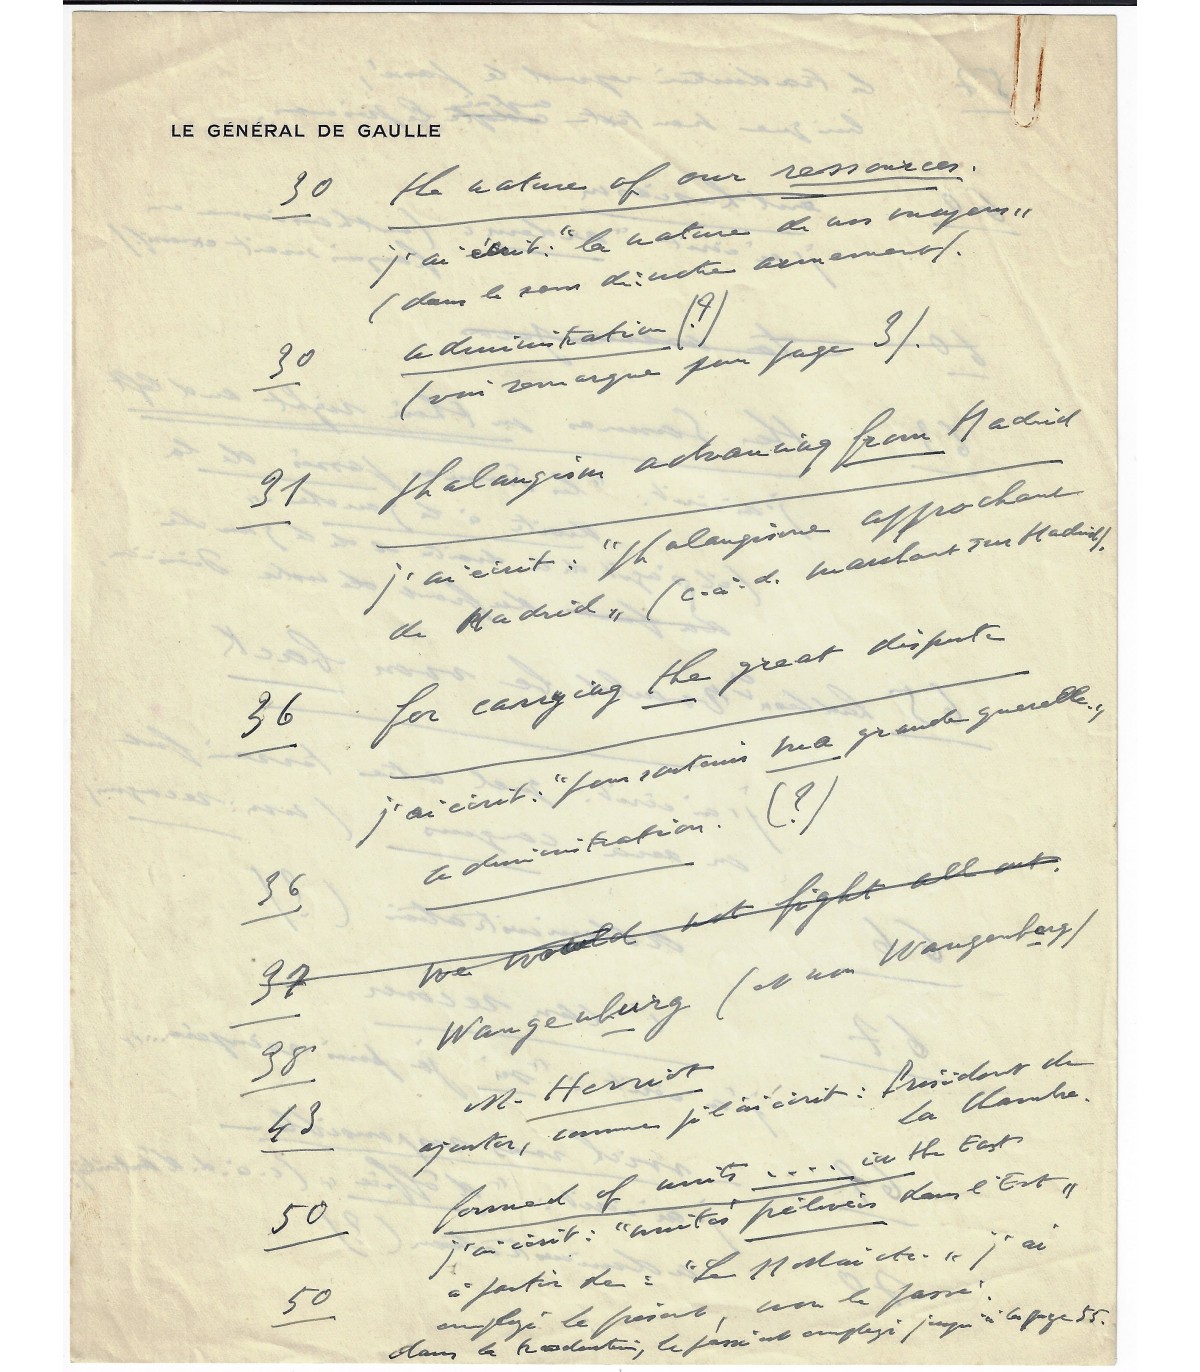 LE GÉNÉRAL DE GAULLE
30 the nature of our ressources.
j'ai écrit: "la nature de nos moyens"
(dans le sens de: notre armement).
30 administration (?)
(voir remarque pour page 3).
31 phalangism advancing from Madrid
j'ai écrit: "phalangisme approchant
de Madrid" (c-à-d. marchant sur Madrid).
36 for carrying the great dispute
j'ai écrit: "pour soutenir ma grande querelle."
36 administration. (?)
37 we would not fight all out.
38 Wangenburg (et non Wangenberg)
43 M. Herriot
ajouter, comme je l'ai écrit: Président de
la Chambre.
50 formed of units .... in the East
j'ai écrit: "unités prélevées dans l'Est"
50 à partir de: "Le Maréchal" j'ai
employé le présent, non le passé.
dans la traduction, le passé est employé jusqu'à la page 55.